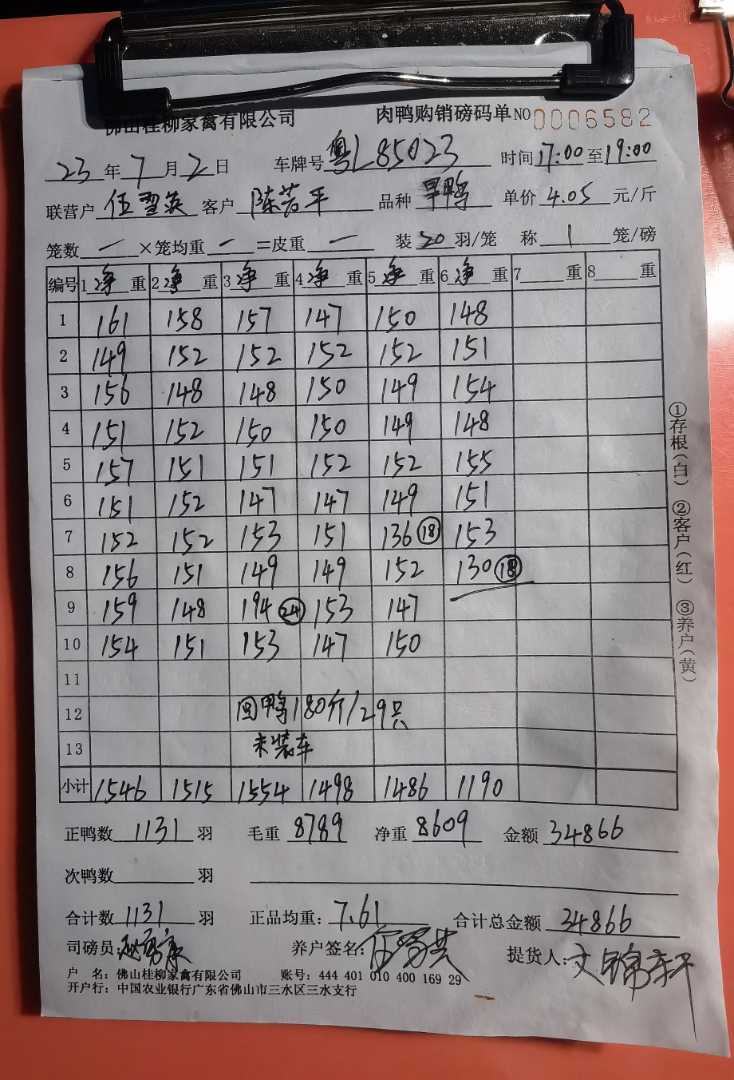 佛山桂柳家禽有限公司 肉鸭购销磅码单 NO 0006582
23 年 7 月 2 日 车牌号 粤L85023 时间 17:00 至 19:00
联营户 伍翠英 客户 陈若平 品种 旱鸭 单价 4.05 元/斤
笼数 — ×笼均重 — =皮重 — 装 20 羽/笼 称 1 笼/磅
编号 1 净 重 2 净 重 3 净 重 4 净 重 5 净 重 6 净 重 7 重 8 重
1 161 158 157 147 150 148
2 149 152 152 152 152 151
3 156 148 148 150 149 154
4 151 152 150 150 149 148
5 157 151 151 152 152 155
6 151 152 147 147 149 151
7 152 152 153 151 136 ⑱ 153
8 156 151 149 149 152 130 ⑱
9 159 148 194 ㉔ 153 147
10 154 151 153 147 150
11
12 回鸭180斤/29只
13 未装车
小计 1546 1515 1554 1498 1486 1190
正鸭数 1131 羽 毛重 8789 净重 8609 金额 34866
次鸭数 羽
合计数 1131 羽 正品均重: 7.61 合计总金额 34866
司磅员: 养户签名: 提货人: 文锦轩
户 名: 佛山桂柳家禽有限公司 账号: 444 401 010 400 169 29
开户行: 中国农业银行广东省佛山市三水区三水支行
①存根(白) ②客户(红) ③养户(黄)